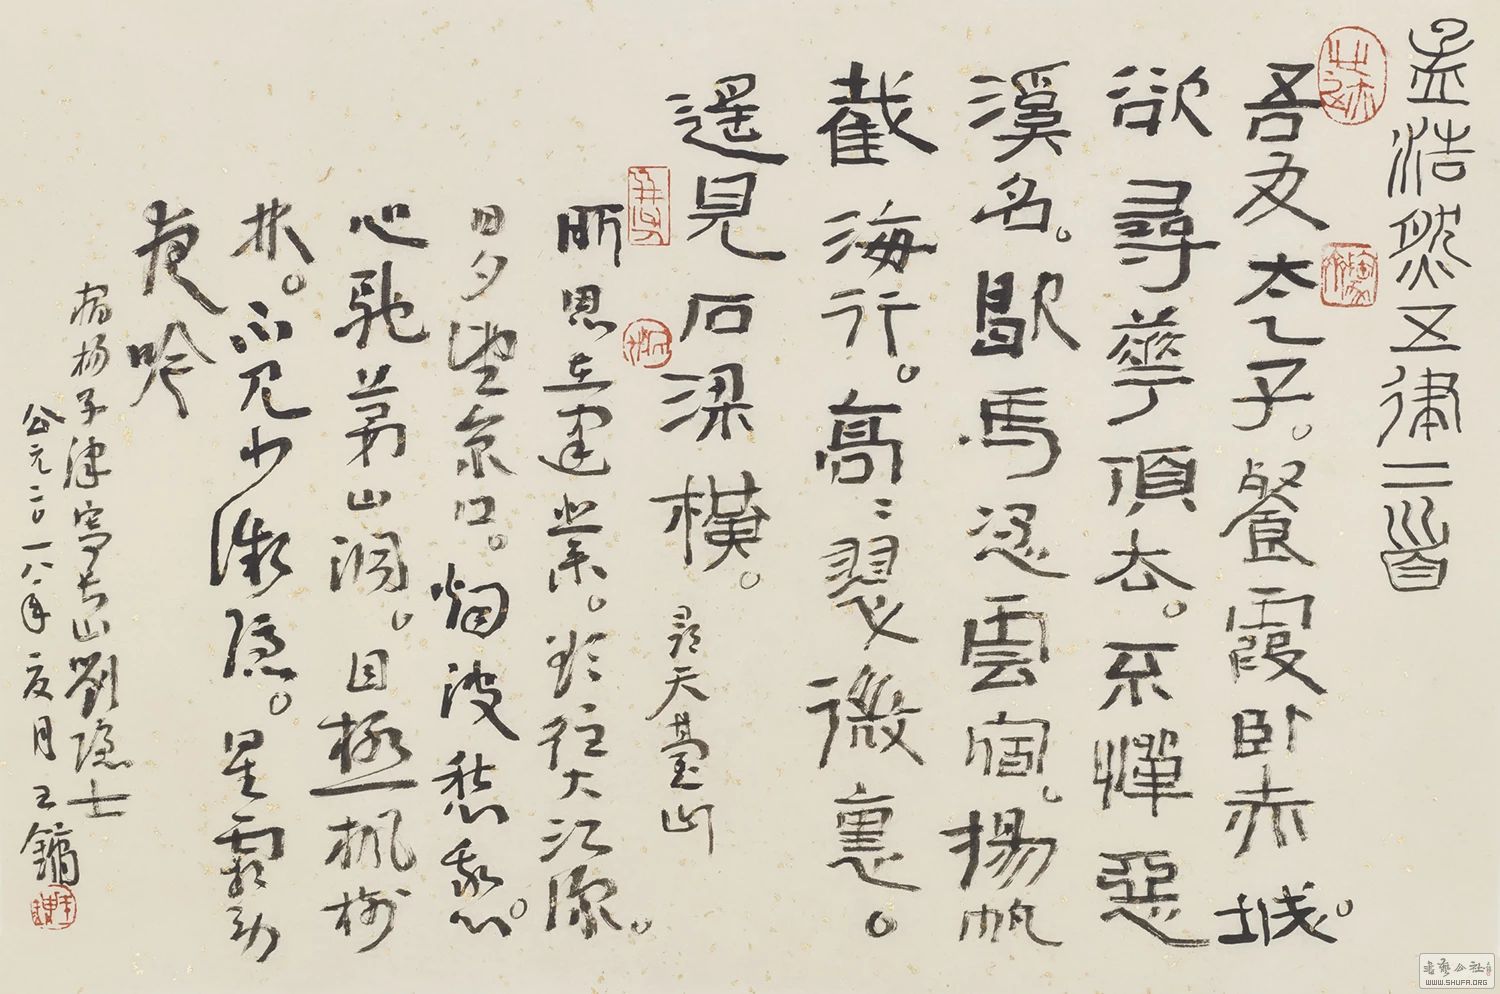 孟浩然五律二首
吾友太乙子。餐霞卧赤城。
欲尋華頂去。不憚惡
溪名。歇馬憑雲宿。揚帆
截海行。高〻翠微裏。
遥見石梁橫。尋天臺山
所思在建業。欲往大江深。
日夕望京口。烟波愁我心。
心馳茅山洞。目極楓樹
林。不見少微隱。星霜勞
夜吟
宿揚子津寄長山劉隱士
公元二〇一八年夏月王鏞
書藝公社
WWW.SHUFA.ORG